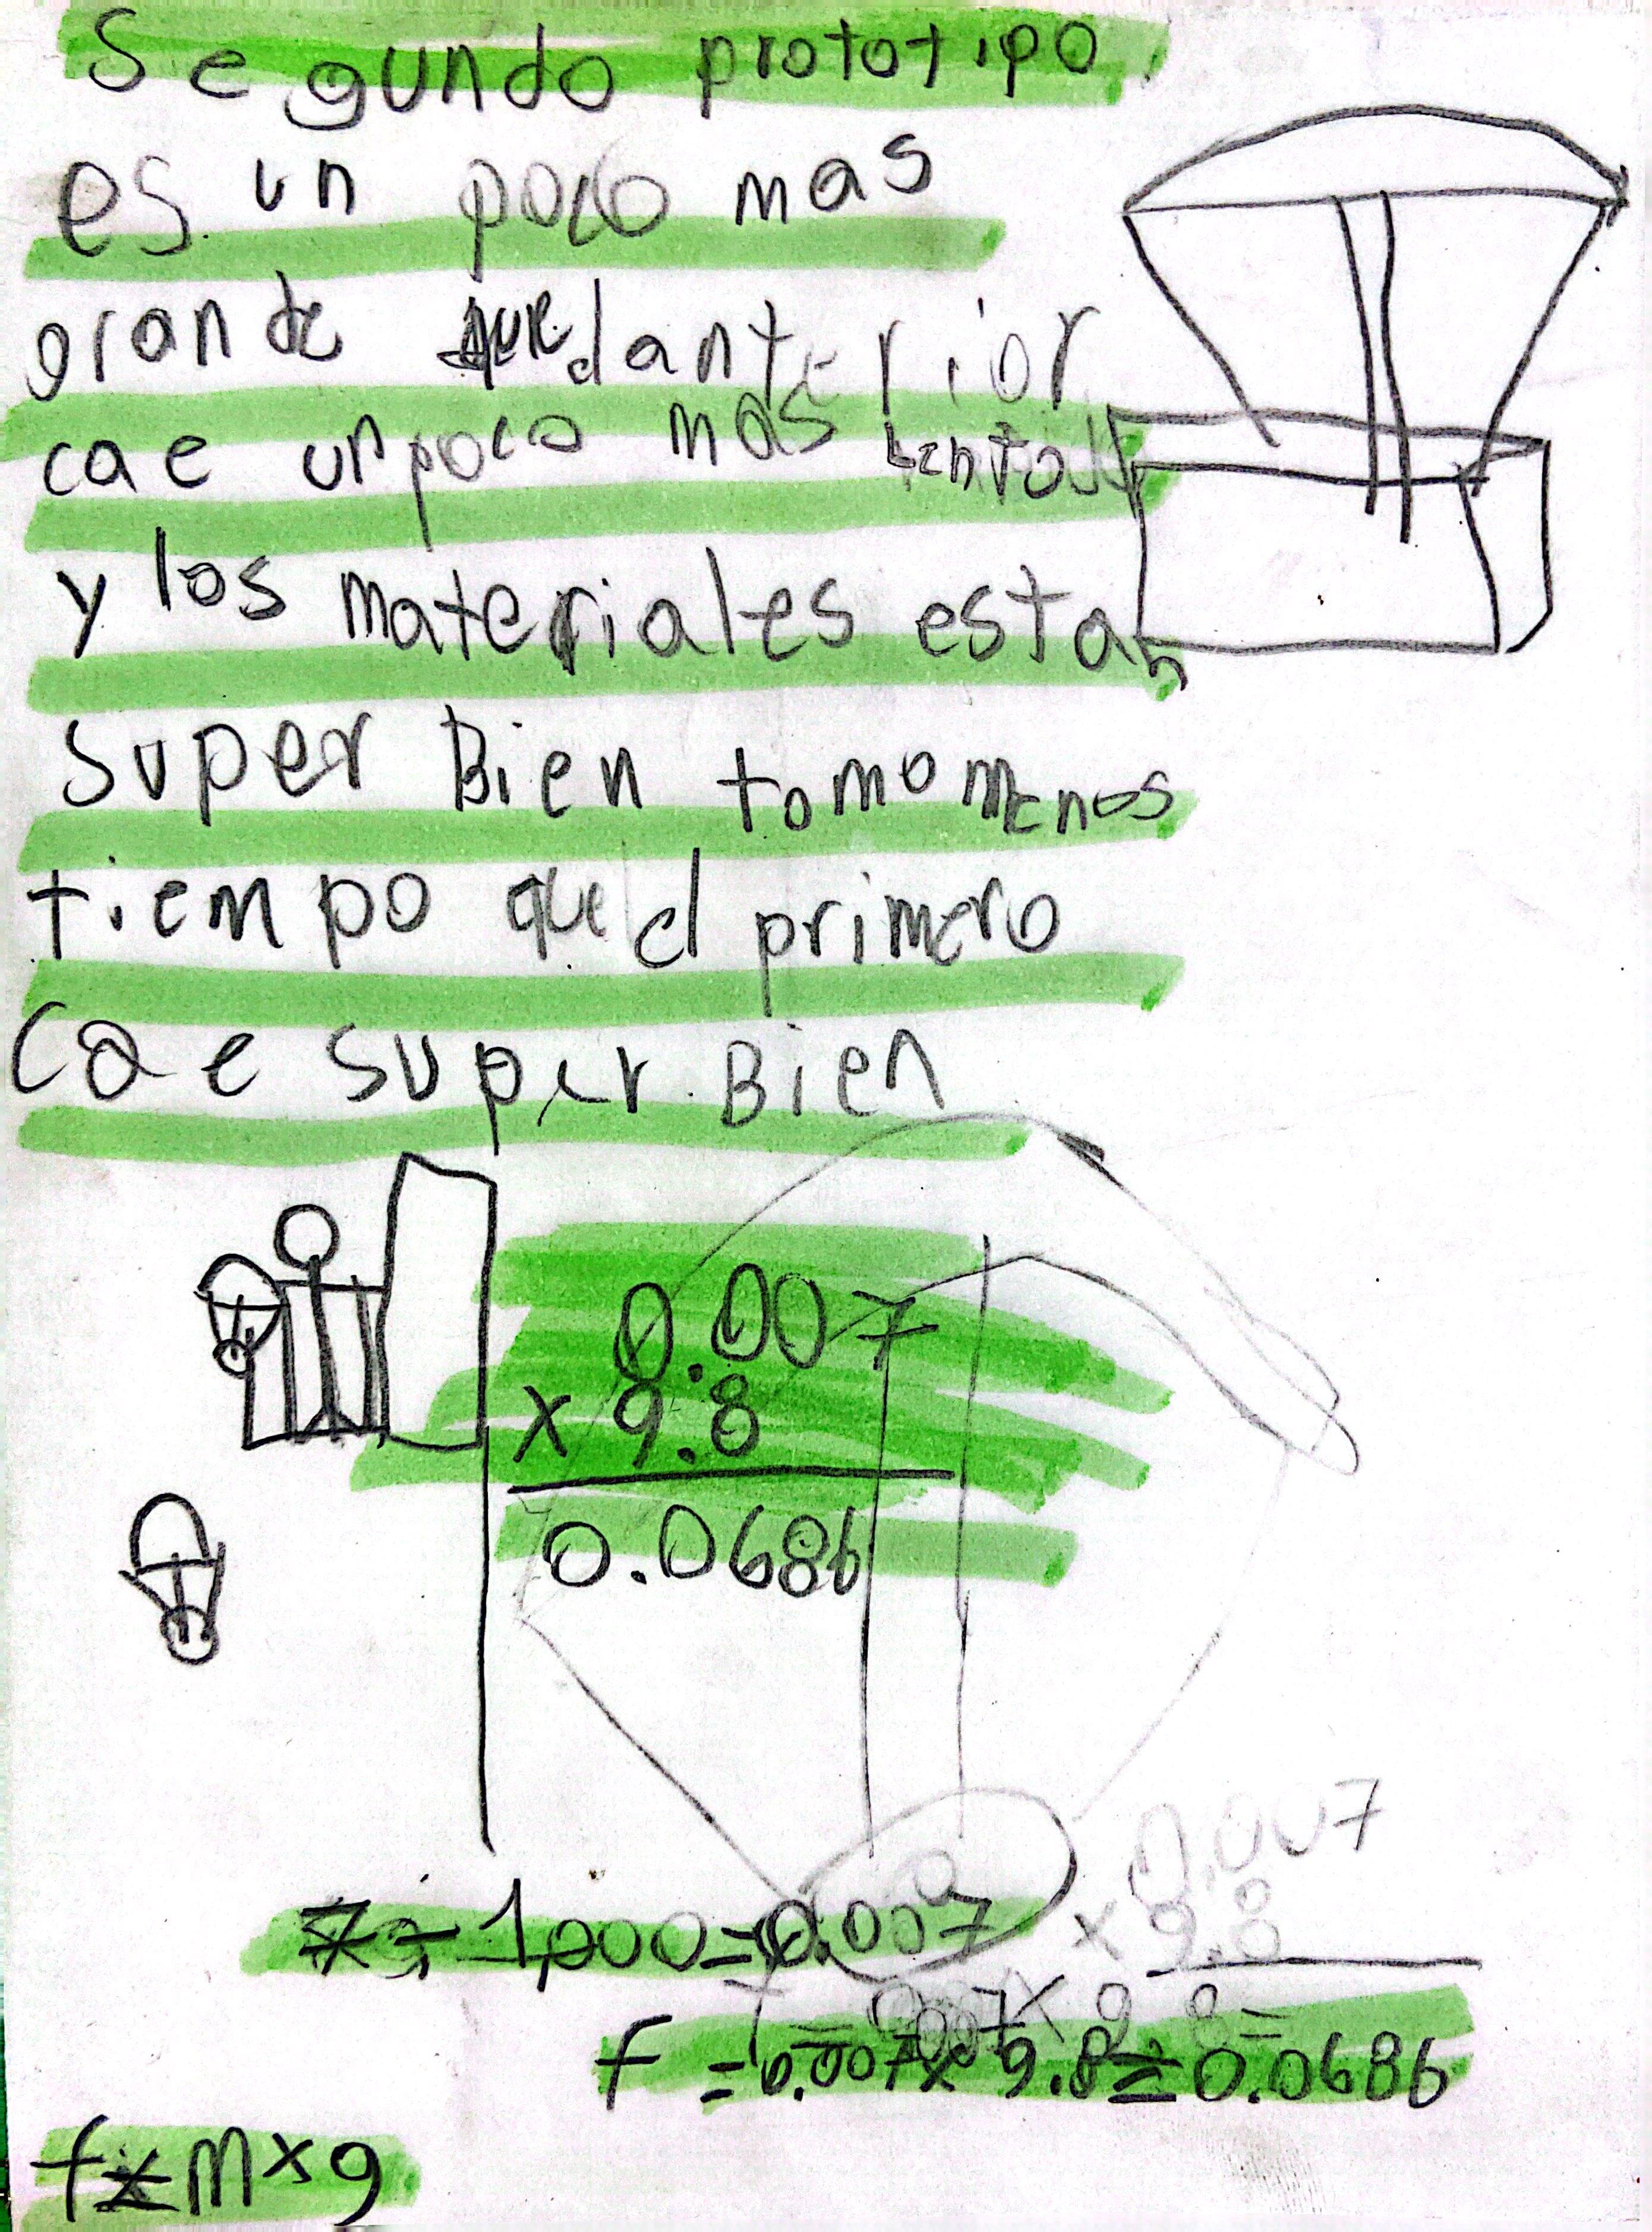 Segundo prototipo
es un poco mas
grande que el anterior
cae un poco mas lento
y los materiales estan
super Bien tomo menos
tiempo que el primero
Cae super Bien
0.007
x 9.8
0.0686
0.007
x 9.8
7 ÷ 1,000 = 0.007
f = 0.007 x 9.8 =
f = 0.007 x 9.8 = 0.0686
f = m x g